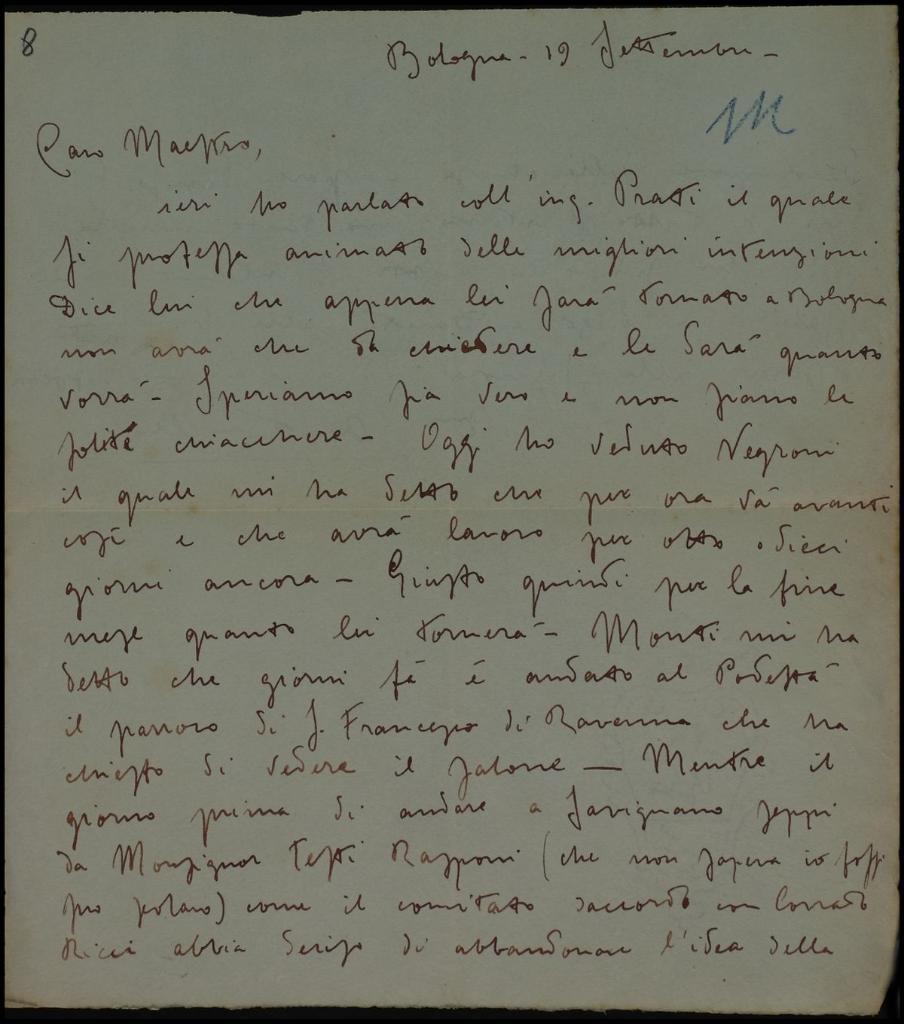 8
Bologna - 19 Settembre -
M
Caro Maestro,
ieri ho parlato coll'ing. Pratti il quale
si professa animato delle migliori intenzioni
Dice lui che appena lei sarà tornato a Bologna
non avrà che da chiedere e le sarà quanto
vorrà - Speriamo sia vero e non siano le
solite chiacchere - Oggi ho veduto Negroni
il quale mi ha detto che per ora và avanti
così e che avrà lavoro per otto o dieci
giorni ancora - Giusto quindi per la fine
mese quanto lei tornerà - Monti mi ha
detto che giorni fà è andato al Podestà
il parroco di S. Francesco di Ravenna che ha
chiesto di vedere il salone — Mentre il
giorno prima di andare a Savignano seppi
da Monsignor Testi Rasponi (che non sapeva io fossi
suo scolaro) come il comitato daccordo con Corrado
Ricci abbia deciso di abbandonare l'idea della